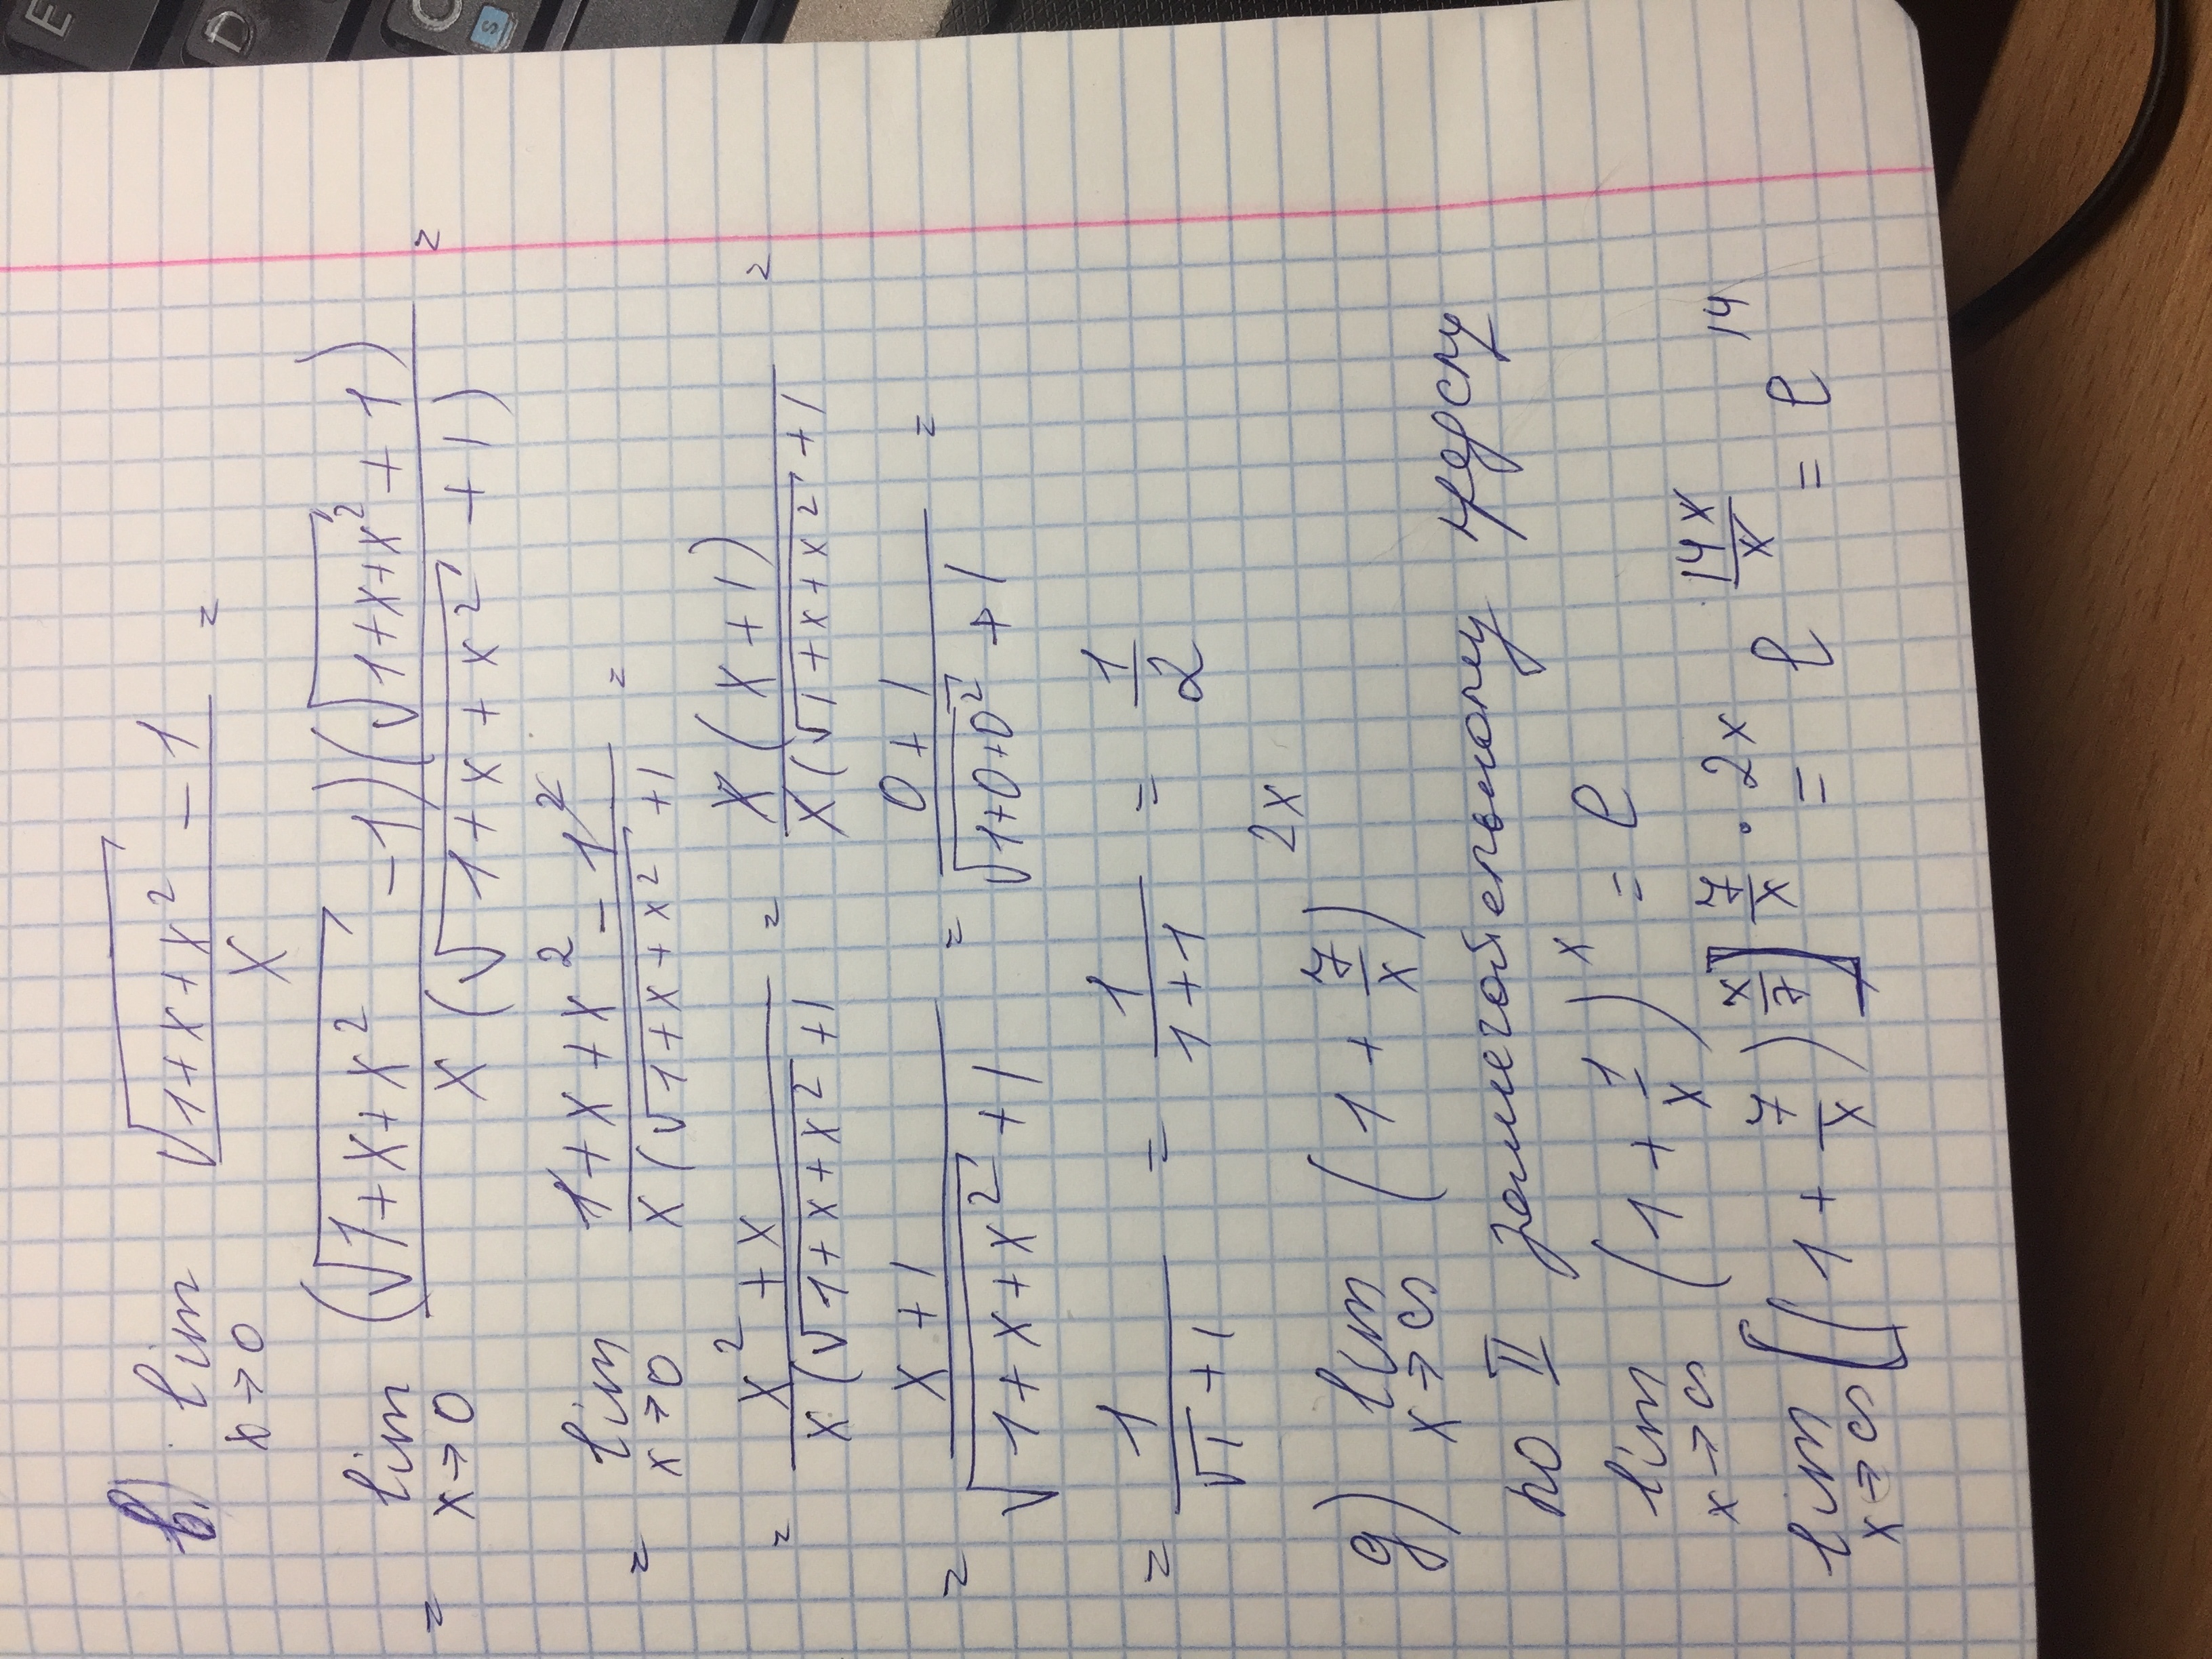 в) lim √(1+x+x²) - 1 / x =
x→0
= lim (√(1+x+x²) - 1)(√(1+x+x²) + 1) / x(√(1+x+x²) + 1) =
x→0
= lim 1+x+x² - 1² / x(√(1+x+x²) + 1 =
x→0
= x² + x / x(√(1+x+x²) + 1 = x(x+1) / x(√(1+x+x²) + 1 =
= x+1 / √(1+x+x²) + 1 = 0+1 / √(1+0+0²) + 1 =
= 1 / √1 + 1 = 1 / 1+1 = 1/2
g) lim (1 + 7/x)^2x
x→∞
по II замечательному
lim (1 + 1/x)^x = e
x→∞
lim [(1 + 7/x)^x/7]^7/x · 2x = e^14x/x = e^14
x→∞
E
D
C
S